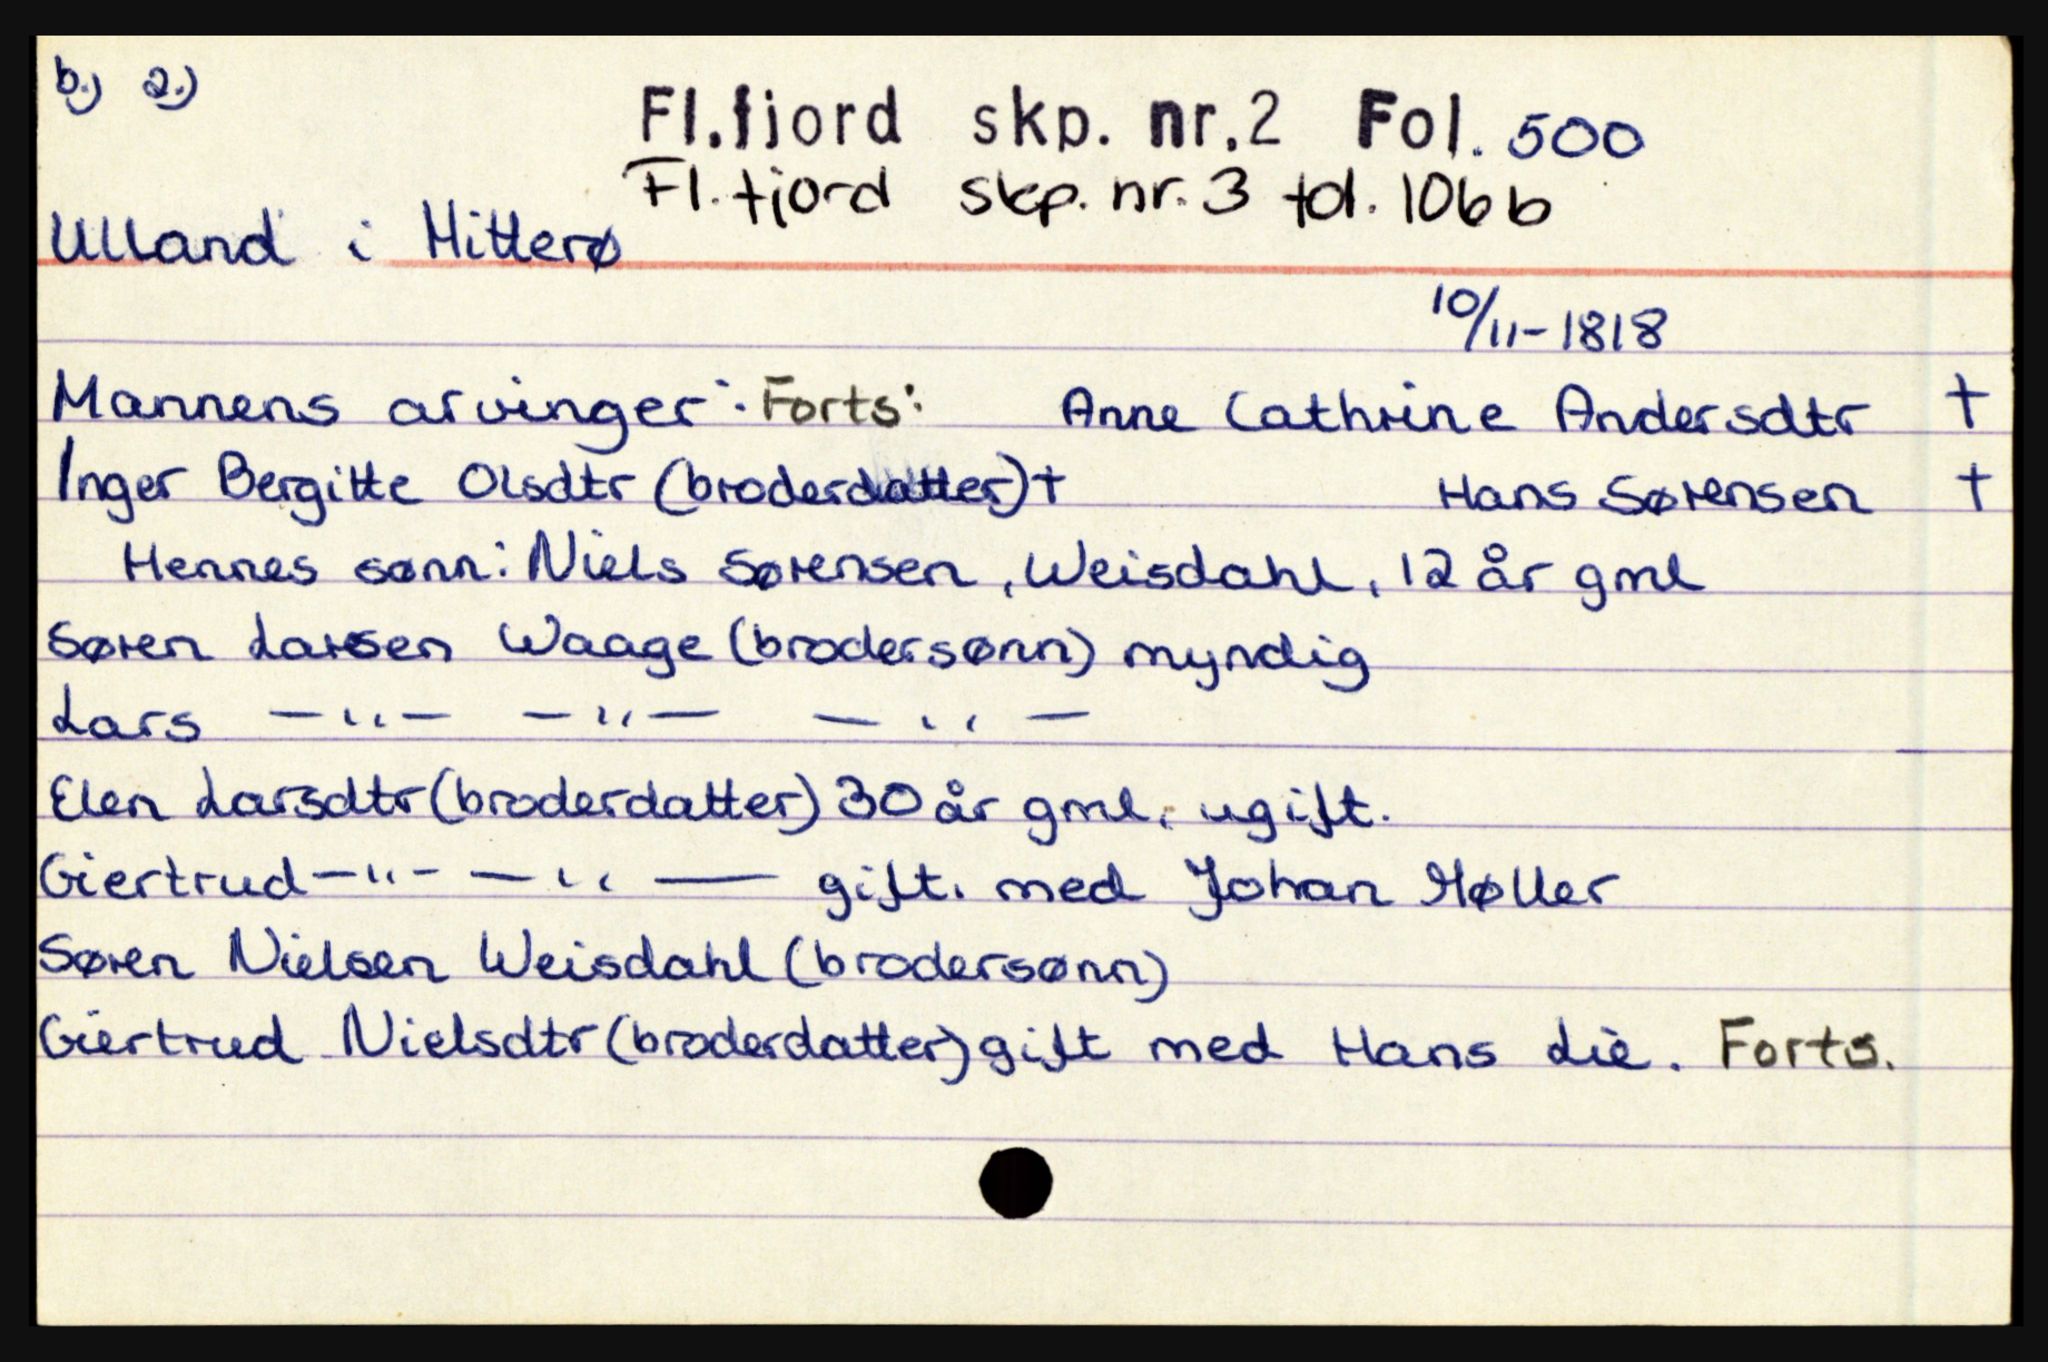 b.) 2.)
Fl.fjord skp. nr.2 Fol. 500
Fl. fjord skp. nr. 3 fol. 106 b
Ulland i Hitterø
10/11-1818
Mannens arvinger: Forts: Anne Cathrine Andersdtr †
Inger Bergitte Olsdtr (broderdatter) † Hans Sørensen †
Hennes sønn: Niels Sørensen, Weisdahl, 12 år gml
Søren Larsen Waage (brodersønn) myndig
Lars —"— —"— —"—
Elen Larsdtr (broderdatter) 30 år gml, ugift.
Giertrud —"— —"— gift. med Johan Møller
Søren Nielsen Weisdahl (brodersønn)
Giertrud Nielsdtr (broderdatter) gift med Hans Lie. Forts.